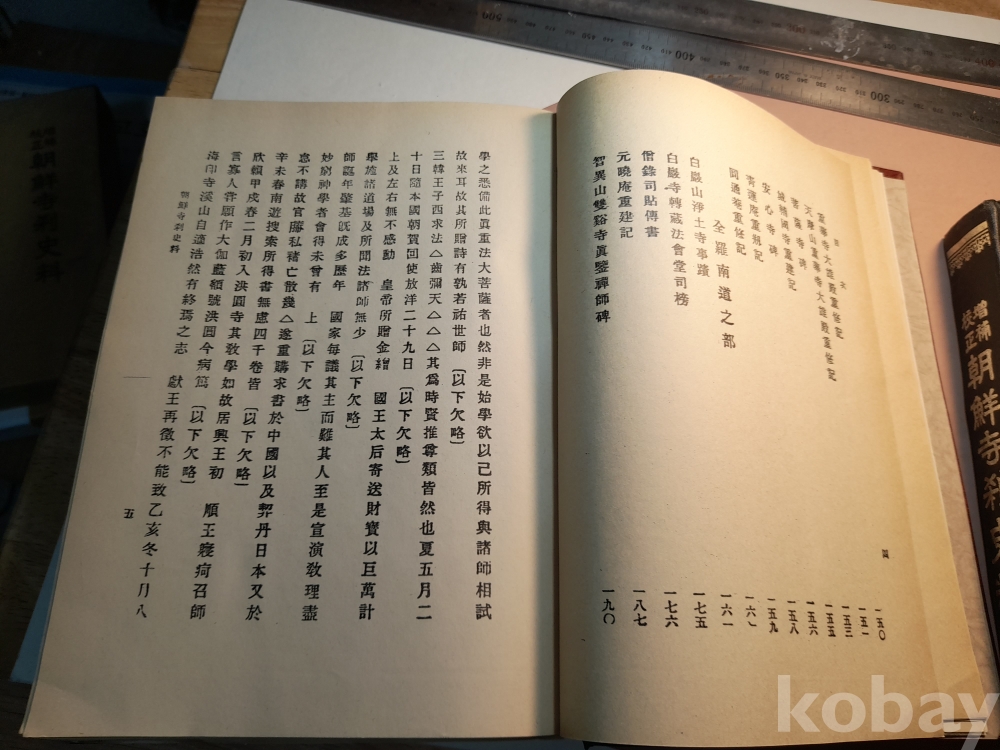 目次
重華寺大雄殿重修記
天摩山重華寺大雄殿重修記
菩薩寺碑
誠積國寺重建記
安心寺碑
青蓮庵重刱記
圓通庵重修記
全羅南道之部
白巖山淨土寺事蹟
白巖寺轉藏法會堂司榜
僧錄司貼傳書
元曉庵重建記
智異山雙谿寺眞鑒禪師碑
一五〇
一五一
一五三
一五五
一五六
一五八
一五九
一六〇
一六一
一七五
一七六
一八七
一九〇
四
學之悉備此眞重法大菩薩者也然非是始學欲以己所得與諸師相試
故來耳故其所贈詩有孰若祐世師 〔以下欠略〕
三韓王子西求法△齒彌天△△△其爲時賢推尊類皆然也夏五月二
十日隨本國朝賀回使放洋二十九日 〔以下欠略〕
上及左右無不感動 皇帝所贈金繒 國王太后寄送財寶以巨萬計
學施諸道場及所聞法諸師無少 〔以下欠略〕
師誕年肇基旣成多歷年 國家每議其主而難其人至是宣演敎理盡
妙窮神學者會得未曾有 上 〔以下欠略〕
息不講故官薄私褚亡散幾△遂重購求書於中國以及契丹日本又於
辛未春南遊搜索所得書無慮四千卷皆 〔以下欠略〕
欣賴甲戌春二月初入洪圓寺其敎學如故居興王初 順王寢疴召師
言寡人昔願作大伽藍額號洪圓今病篤 〔以下欠略〕
海印寺溪山自適浩然有終焉之志 獻王再徵不能致乙亥冬十月八
朝鮮寺刹史料
五
增補校正 朝鮮寺刹史
500
400
300
kobay